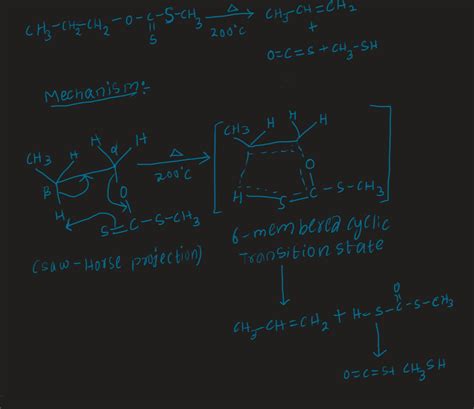 CH₃-CH₂-CH₂-O-C-S-CH₃ Δ 200°C CH₃-CH=CH₂
S
+
O=C=S+CH₃-SH
Mechanism:-
CH₃ H H α H
β
H O
S=C-S-CH₃
Δ
200°C
CH₃ H H H
O
H S C-S-CH₃
(saw-Horse projection)
6-membered cyclic
Transition state
CH₃-CH=CH₂ + H-S-C-S-CH₃
O
O=C=S+ CH₃SH